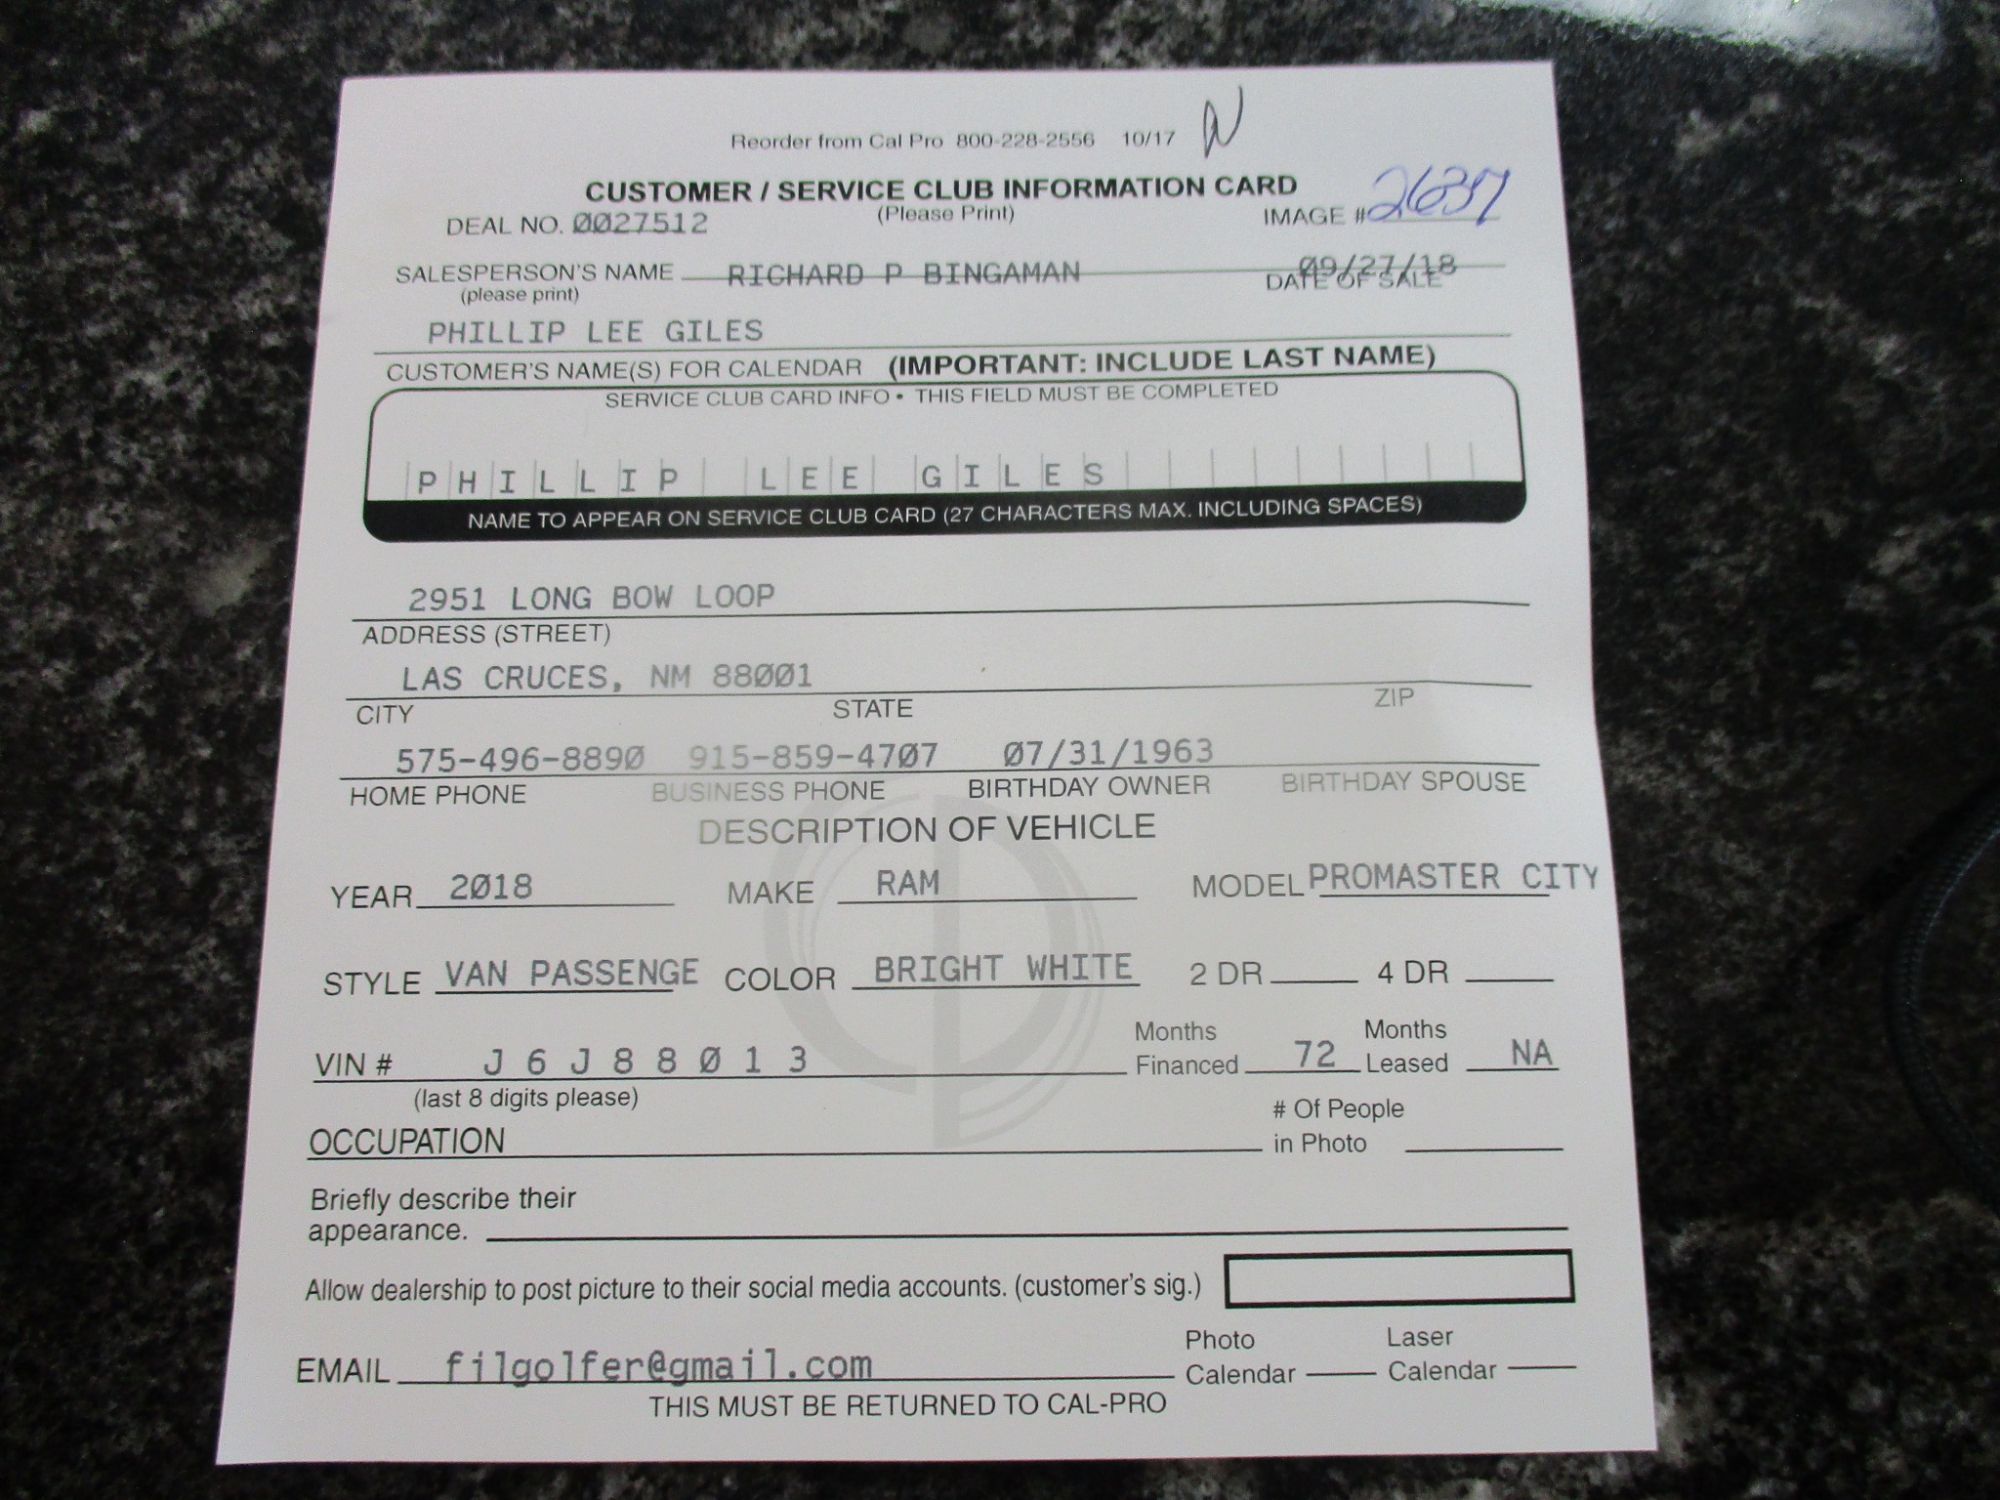 Reorder from Cal Pro 800-228-2556 10/17 N
CUSTOMER / SERVICE CLUB INFORMATION CARD
DEAL NO. 0027512 (Please Print) IMAGE # 2637
SALESPERSON'S NAME RICHARD P BINGAMAN 09/27/18
(please print) DATE OF SALE
PHILLIP LEE GILES
CUSTOMER'S NAME(S) FOR CALENDAR (IMPORTANT: INCLUDE LAST NAME)
SERVICE CLUB CARD INFO • THIS FIELD MUST BE COMPLETED
PHILLIP LEE GILES
NAME TO APPEAR ON SERVICE CLUB CARD (27 CHARACTERS MAX. INCLUDING SPACES)
2951 LONG BOW LOOP
ADDRESS (STREET)
LAS CRUCES, NM 88001
CITY STATE ZIP
575-496-8890 915-859-4707 07/31/1963
HOME PHONE BUSINESS PHONE BIRTHDAY OWNER BIRTHDAY SPOUSE
DESCRIPTION OF VEHICLE
YEAR 2018 MAKE RAM MODEL PROMASTER CITY
STYLE VAN PASSENGE COLOR BRIGHT WHITE 2 DR 4 DR
VIN # J6J88013 Months Financed 72 Months Leased NA
(last 8 digits please)
OCCUPATION # Of People in Photo
Briefly describe their
appearance.
Allow dealership to post picture to their social media accounts. (customer's sig.)
EMAIL filgolfer@gmail.com Photo Calendar Laser Calendar
THIS MUST BE RETURNED TO CAL-PRO